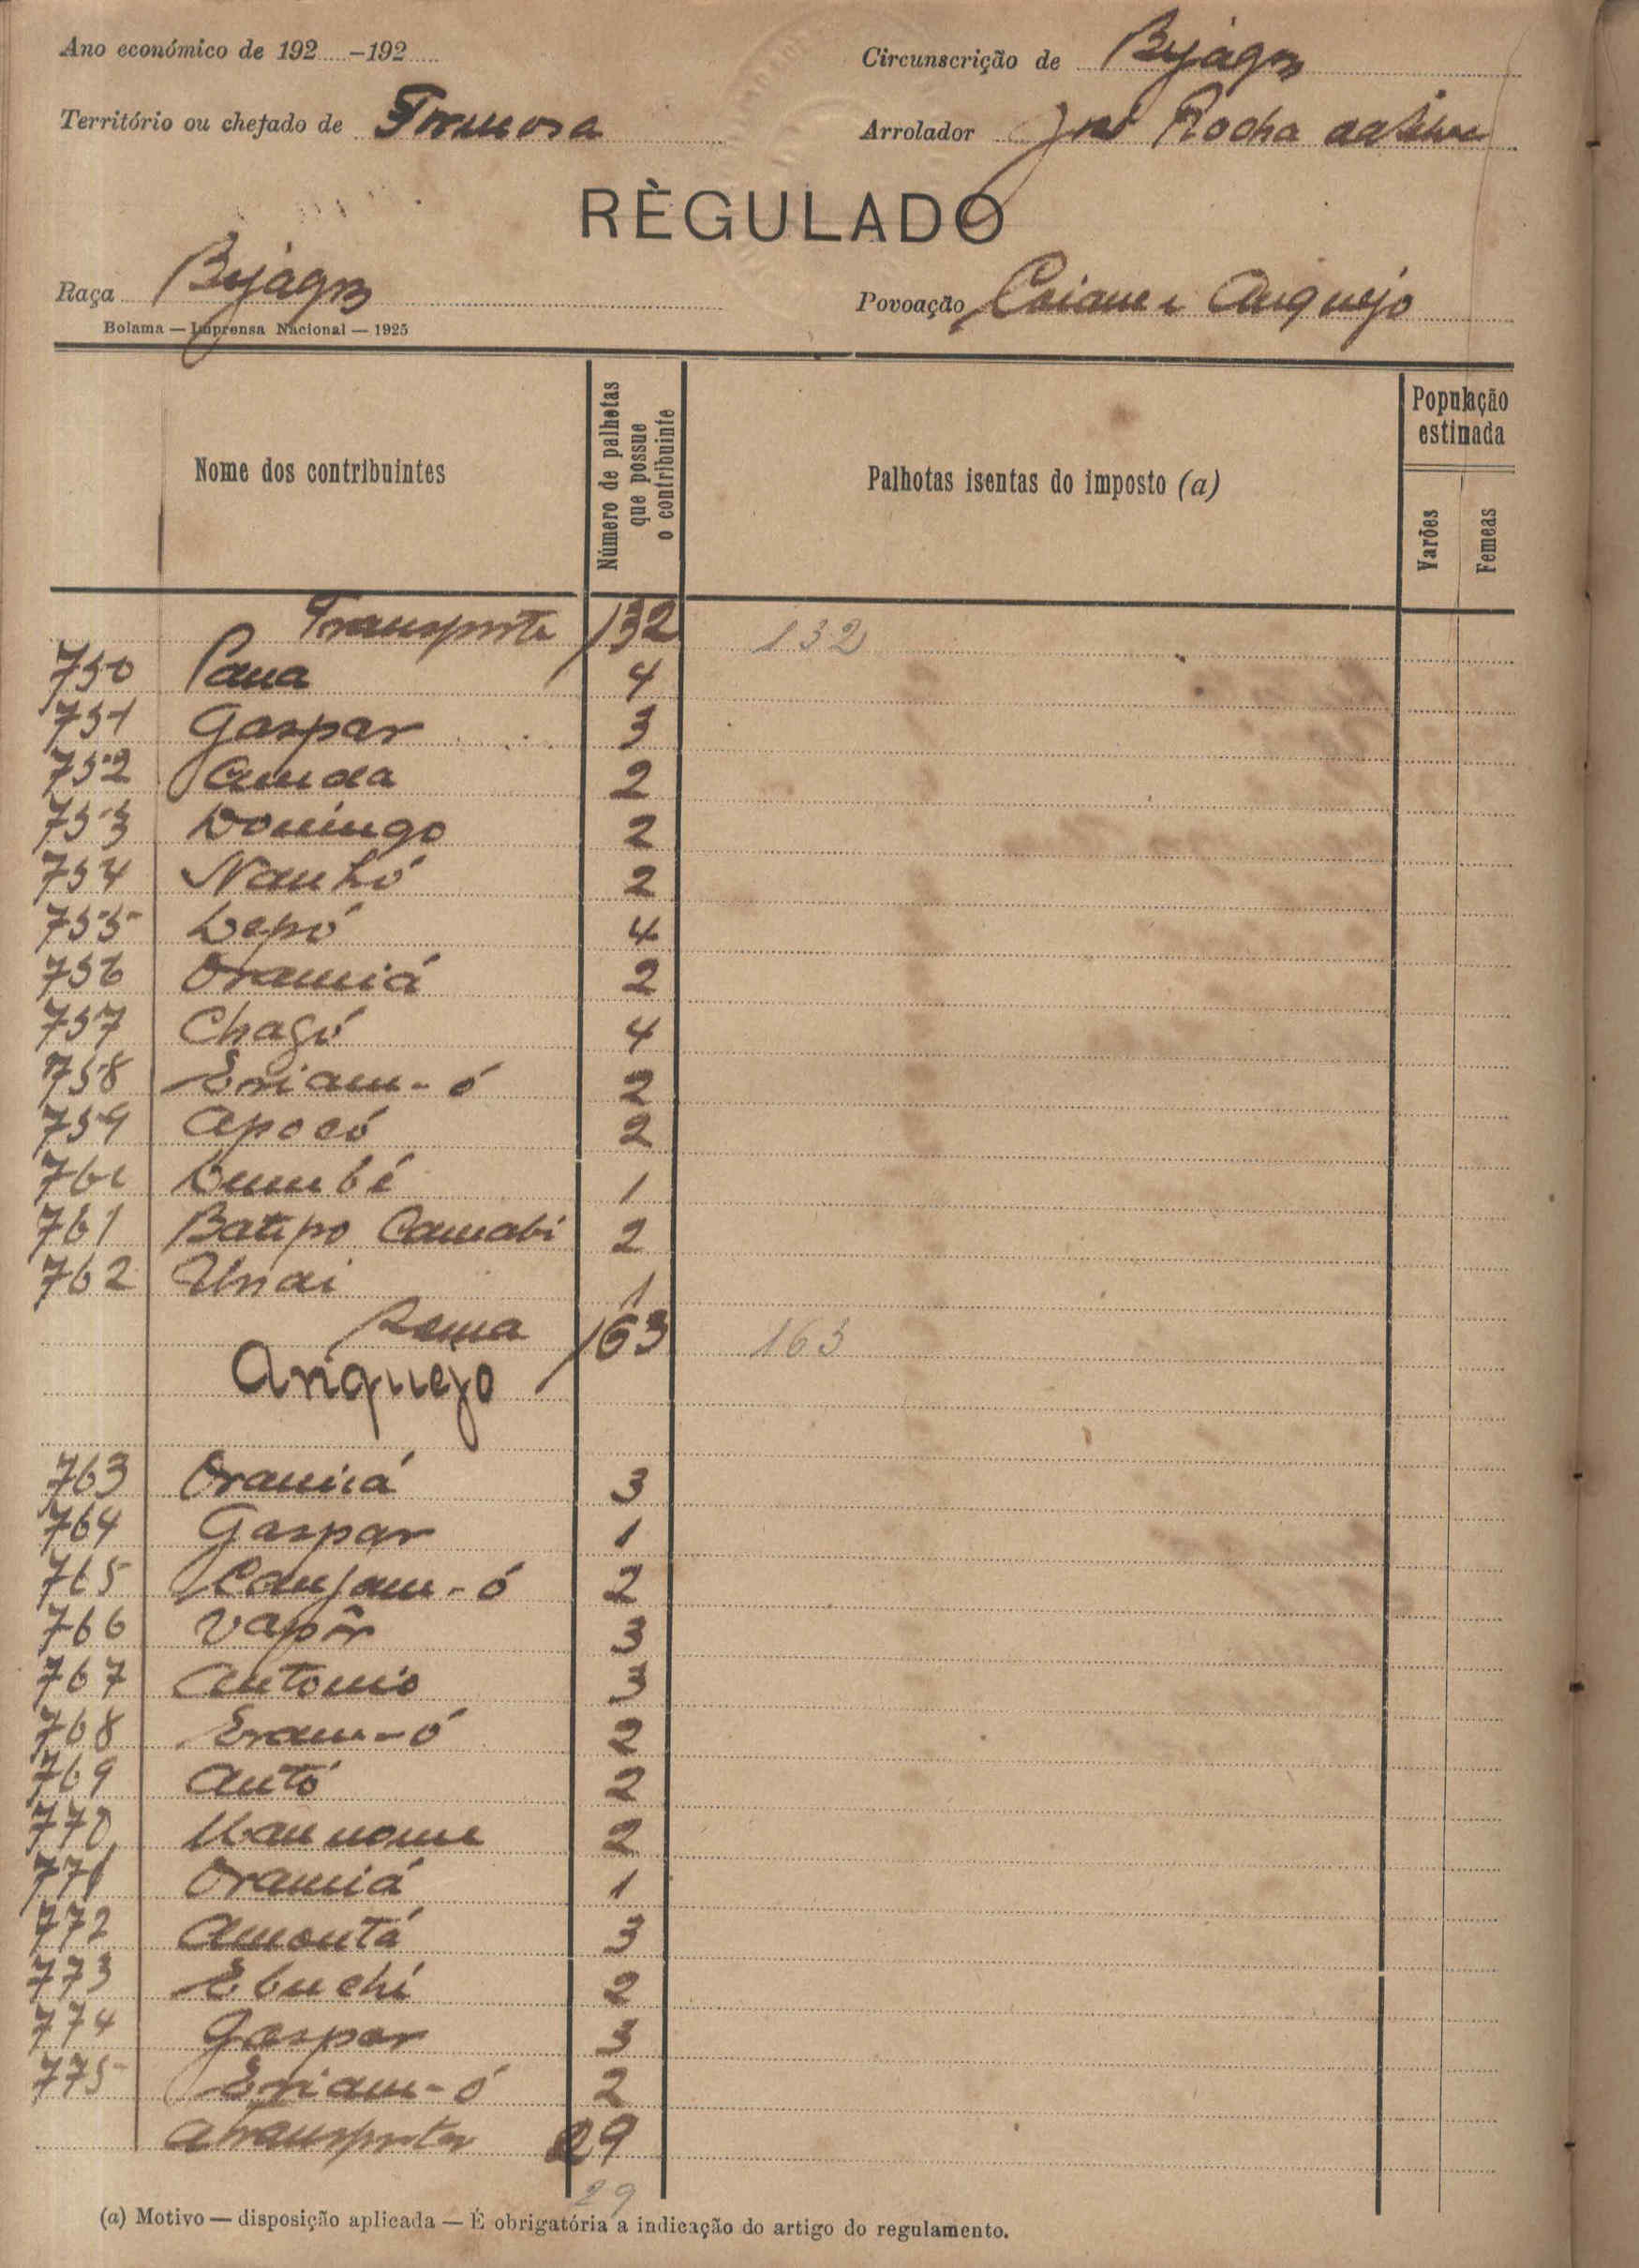 Ano económico de 192.....-192.....
Circunscrição de Byjágos
Território ou chefado de Formosa
Arrolador José Rocha da Silva
RÈGULADO
Raça Byjágos
Povoação Caiane e Ariquejo
Bolama — Imprensa Nacional — 1925
Nome dos contribuintes
Número de palhetas que possue o contribuinte
Palhotas isentas do imposto (a)
População estinada
Varões
Femeas
Transporte 132 132
750 Pana 4
751 Gaspar 3
752 Canda 2
753 Domingo 2
754 Nanhó 2
755 Depó 4
756 Oramiá 2
757 Chagó 4
758 Eriam-ó 2
759 Apocó 2
760 Dumbé 1
761 Batipo Camabi 2
762 Unai 1
Soma 163 163
Ariquejo
763 Oramiá 3
764 Gaspar 1
765 Canjam-ó 2
766 Vapôr 3
767 Antonio 3
768 Eram-ó 2
769 Antó 2
770 2
771 Oramiá 1
772 Amontá 3
773 Ebuchi 2
774 Gaspar 3
775 Eriam-ó 2
A transportar 29
29
(a) Motivo — disposição aplicada — É obrigatória a indicação do artigo do regulamento.